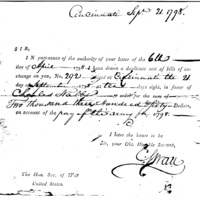 Cincinnati Sept. 21. 1798.
SIR,
IN pursuance of the authority of your letter of the 6th
day of April 1798. I have drawn a duplicate set of bills of
exchange on you, No. 292 dated at Cincinnati the 21
day of September at ten days sight, in favor of
Charles for the sum of
Two thousand three hundred fifty Dollars,
on account of the pay of the army for 1798.
I have the honor to be
Sir, your Obt. Humble Servant,
C Swan
The Hon. Sec. of War
United States.